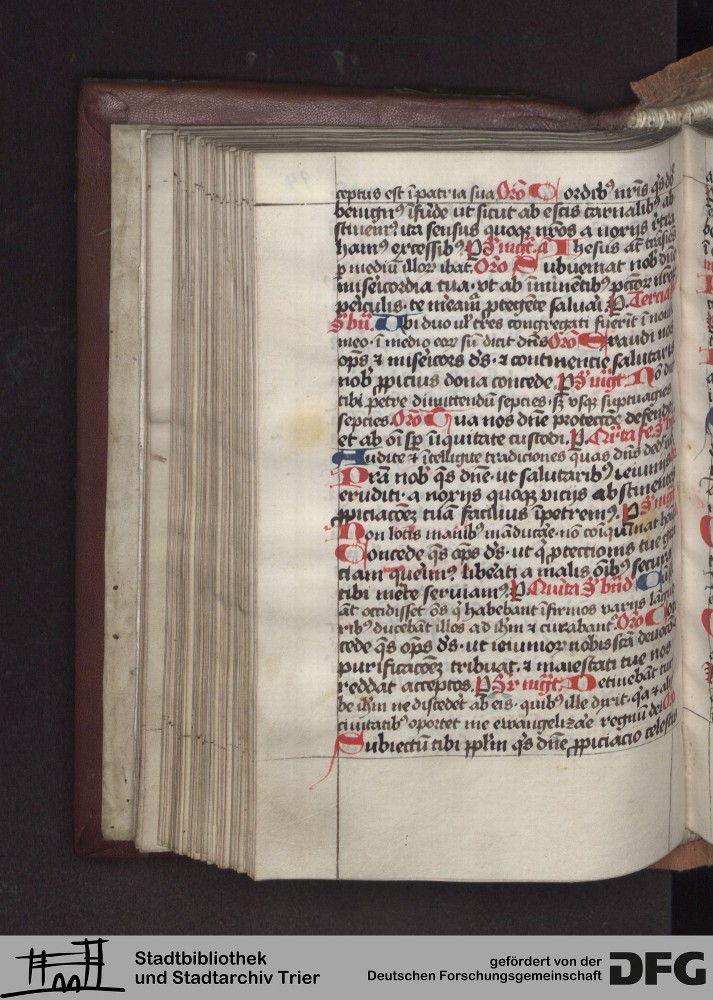 ceptus est i̅ patria sua Oro̅ Cordib9 nr̅is q̅s d̅s
benign9 i̅fu̅de ut sicut ab escis carnalib9 ab
stinem9 ita sensus quoq3 nr̅os a noxijs
ham9 excessib9 P Ihesus at̅ tra̅sie̅s
p mediu̅ illor ibat. Oro̅ Subueniat nob d̅ne
mis̅ericordia tua. vt ab i̅mine̅tib9 pctor
piculis. te ptege̅te saluari P. Tercia
Ubi duo ul̅ tres congregati fuerit i̅
meo. i̅ medio eor su̅ dicit dn̅s Oro̅ Exaudi nos
op̅s et mis̅ericors d̅s. et continentie salutaris
nob ppicius dona concede. P No̅ dico
tibi petre dimittendu̅ septies. s3 vsq3 septuagies
septies. Oro̅ Tua nos dn̅e protectio̅e defende
et ab o̅i iniquitate custodi. P. Q̅rta fe
Audite et i̅telligite tradiciones quas dn̅s ded
Gra̅m nob q̅s dn̅e. ut salutarib9 ieiunijs
eruditi. a noxijs quoq3 vicijs abstinentes
ppiciac̅oe̅3 tua̅ facilius i̅petrem9. P
Non lotis manib9 ma̅ducare. no̅ coi̅quinat ho̅i̅em
Concede q̅s op̅s d̅s. ut q̅ ptectionis tue gra
ciam querim9. liberati a malis o̅ib9 secura
tibi me̅te seruiam9. P. Qui̅ta
at̅ occidisset o̅s q̅ habebant i̅firmos varijs langu
rib9 duceba̅t illos ad ih̅m et curabant. Oro̅ Con
cede q̅s op̅s d̅s. ut ieiunior nobis sc̅a deuocio
purificac̅oe̅3 tribuat. et maiestati tue nos
reddat acceptos. P Detineba̅t tur
be ih̅m ne discedet ab eis. quib9 ille dixit. q̅a et alijs
ciuitatib9 oportet me ewangeliza̅e regnu̅ dei Oro̅
Subiectu̅ tibi pplm q̅s dn̅e ppiciacio celestis
Stadtbibliothek
und Stadtarchiv Trier
gefördert von der
Deutschen Forschungsgemeinschaft
DFG